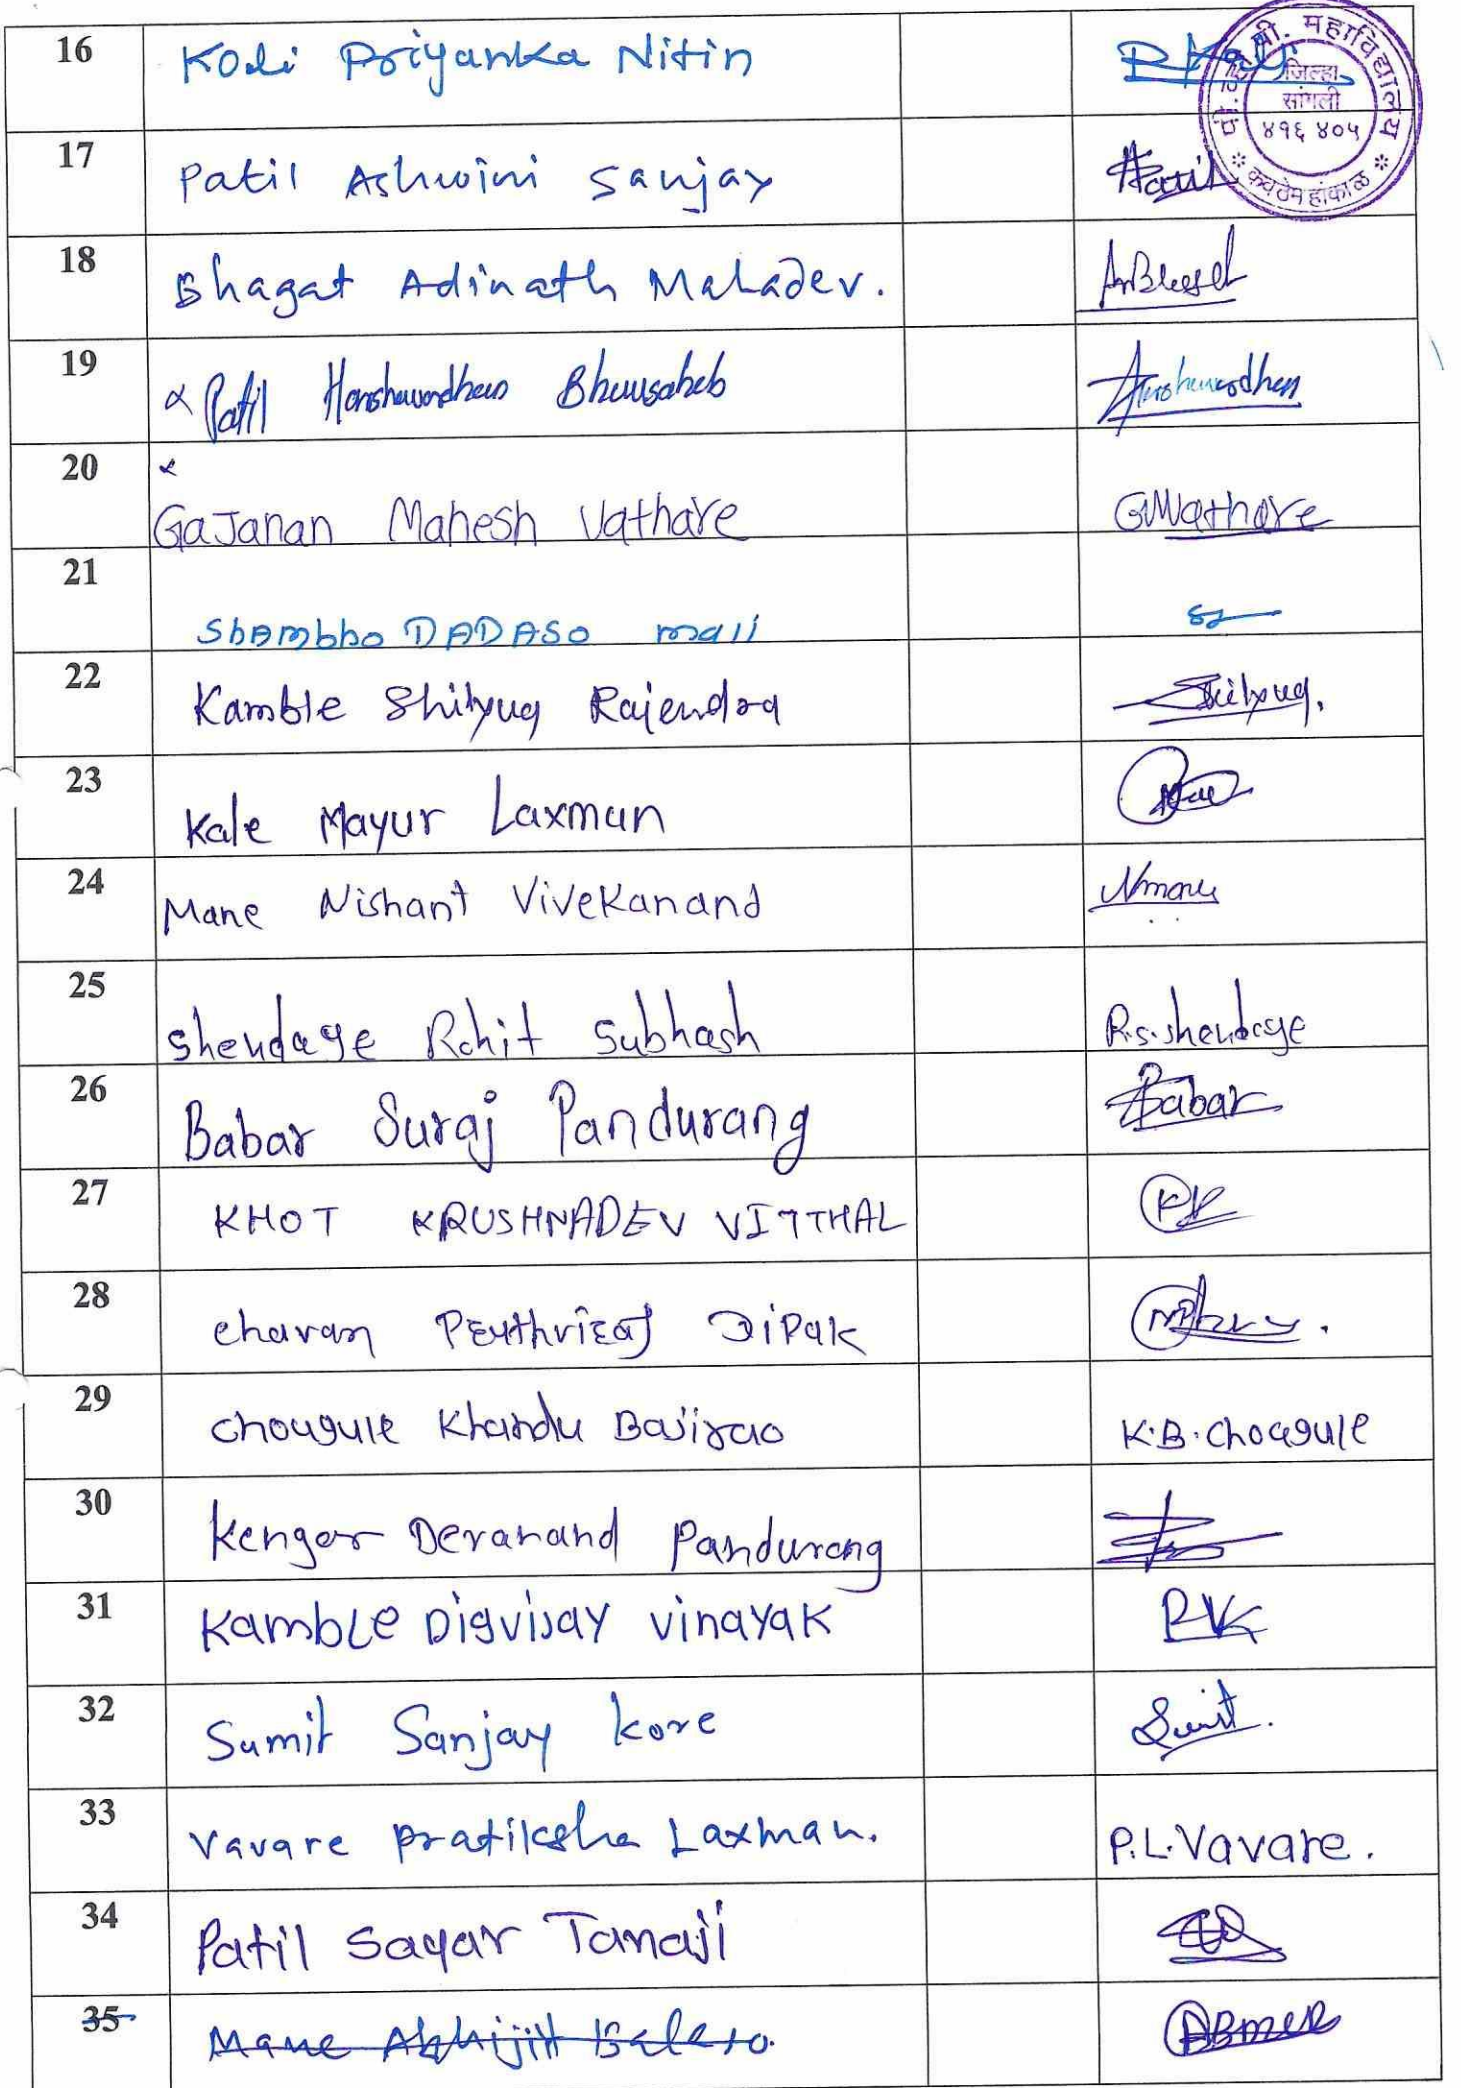 16 Koli Priyanka Nitin
पी. महाविद्यालय
जिल्हा
सांगली
४१६ ४०५
कवठेमहांकाळ
17 Patil Ashwini Sanjay
18 Bhagat Adinath Mahadev.
19 Patil Harshawardhan Bhausaheb Harshawardhan
20 GaJanan Mahesh Vathare GMVathare
21 Shambho DADASO mali
22 Kamble Shilyug Rajendra Shilyug.
23 Kale Mayur Laxman
24 Mane Nishant Vivekanand
25 Shendage Rohit Subhash R.S.Shendage
26 Babar Suraj Pandurang Babar
27 KHOT KRUSHNADEV VITTHAL
28 chavan Dipak
29 chougule Khandu Bajirao K.B.Chougule
30 Kengar Devanand Pandurang
31 Kamble Digvijay Vinayak
32 Sumit Sanjay kore Sumit.
33 Vavare Pratiksha Laxman. P.L.Vavare.
34 Patil Sagar Tanaji
35 Mane Abhijit Balaso.